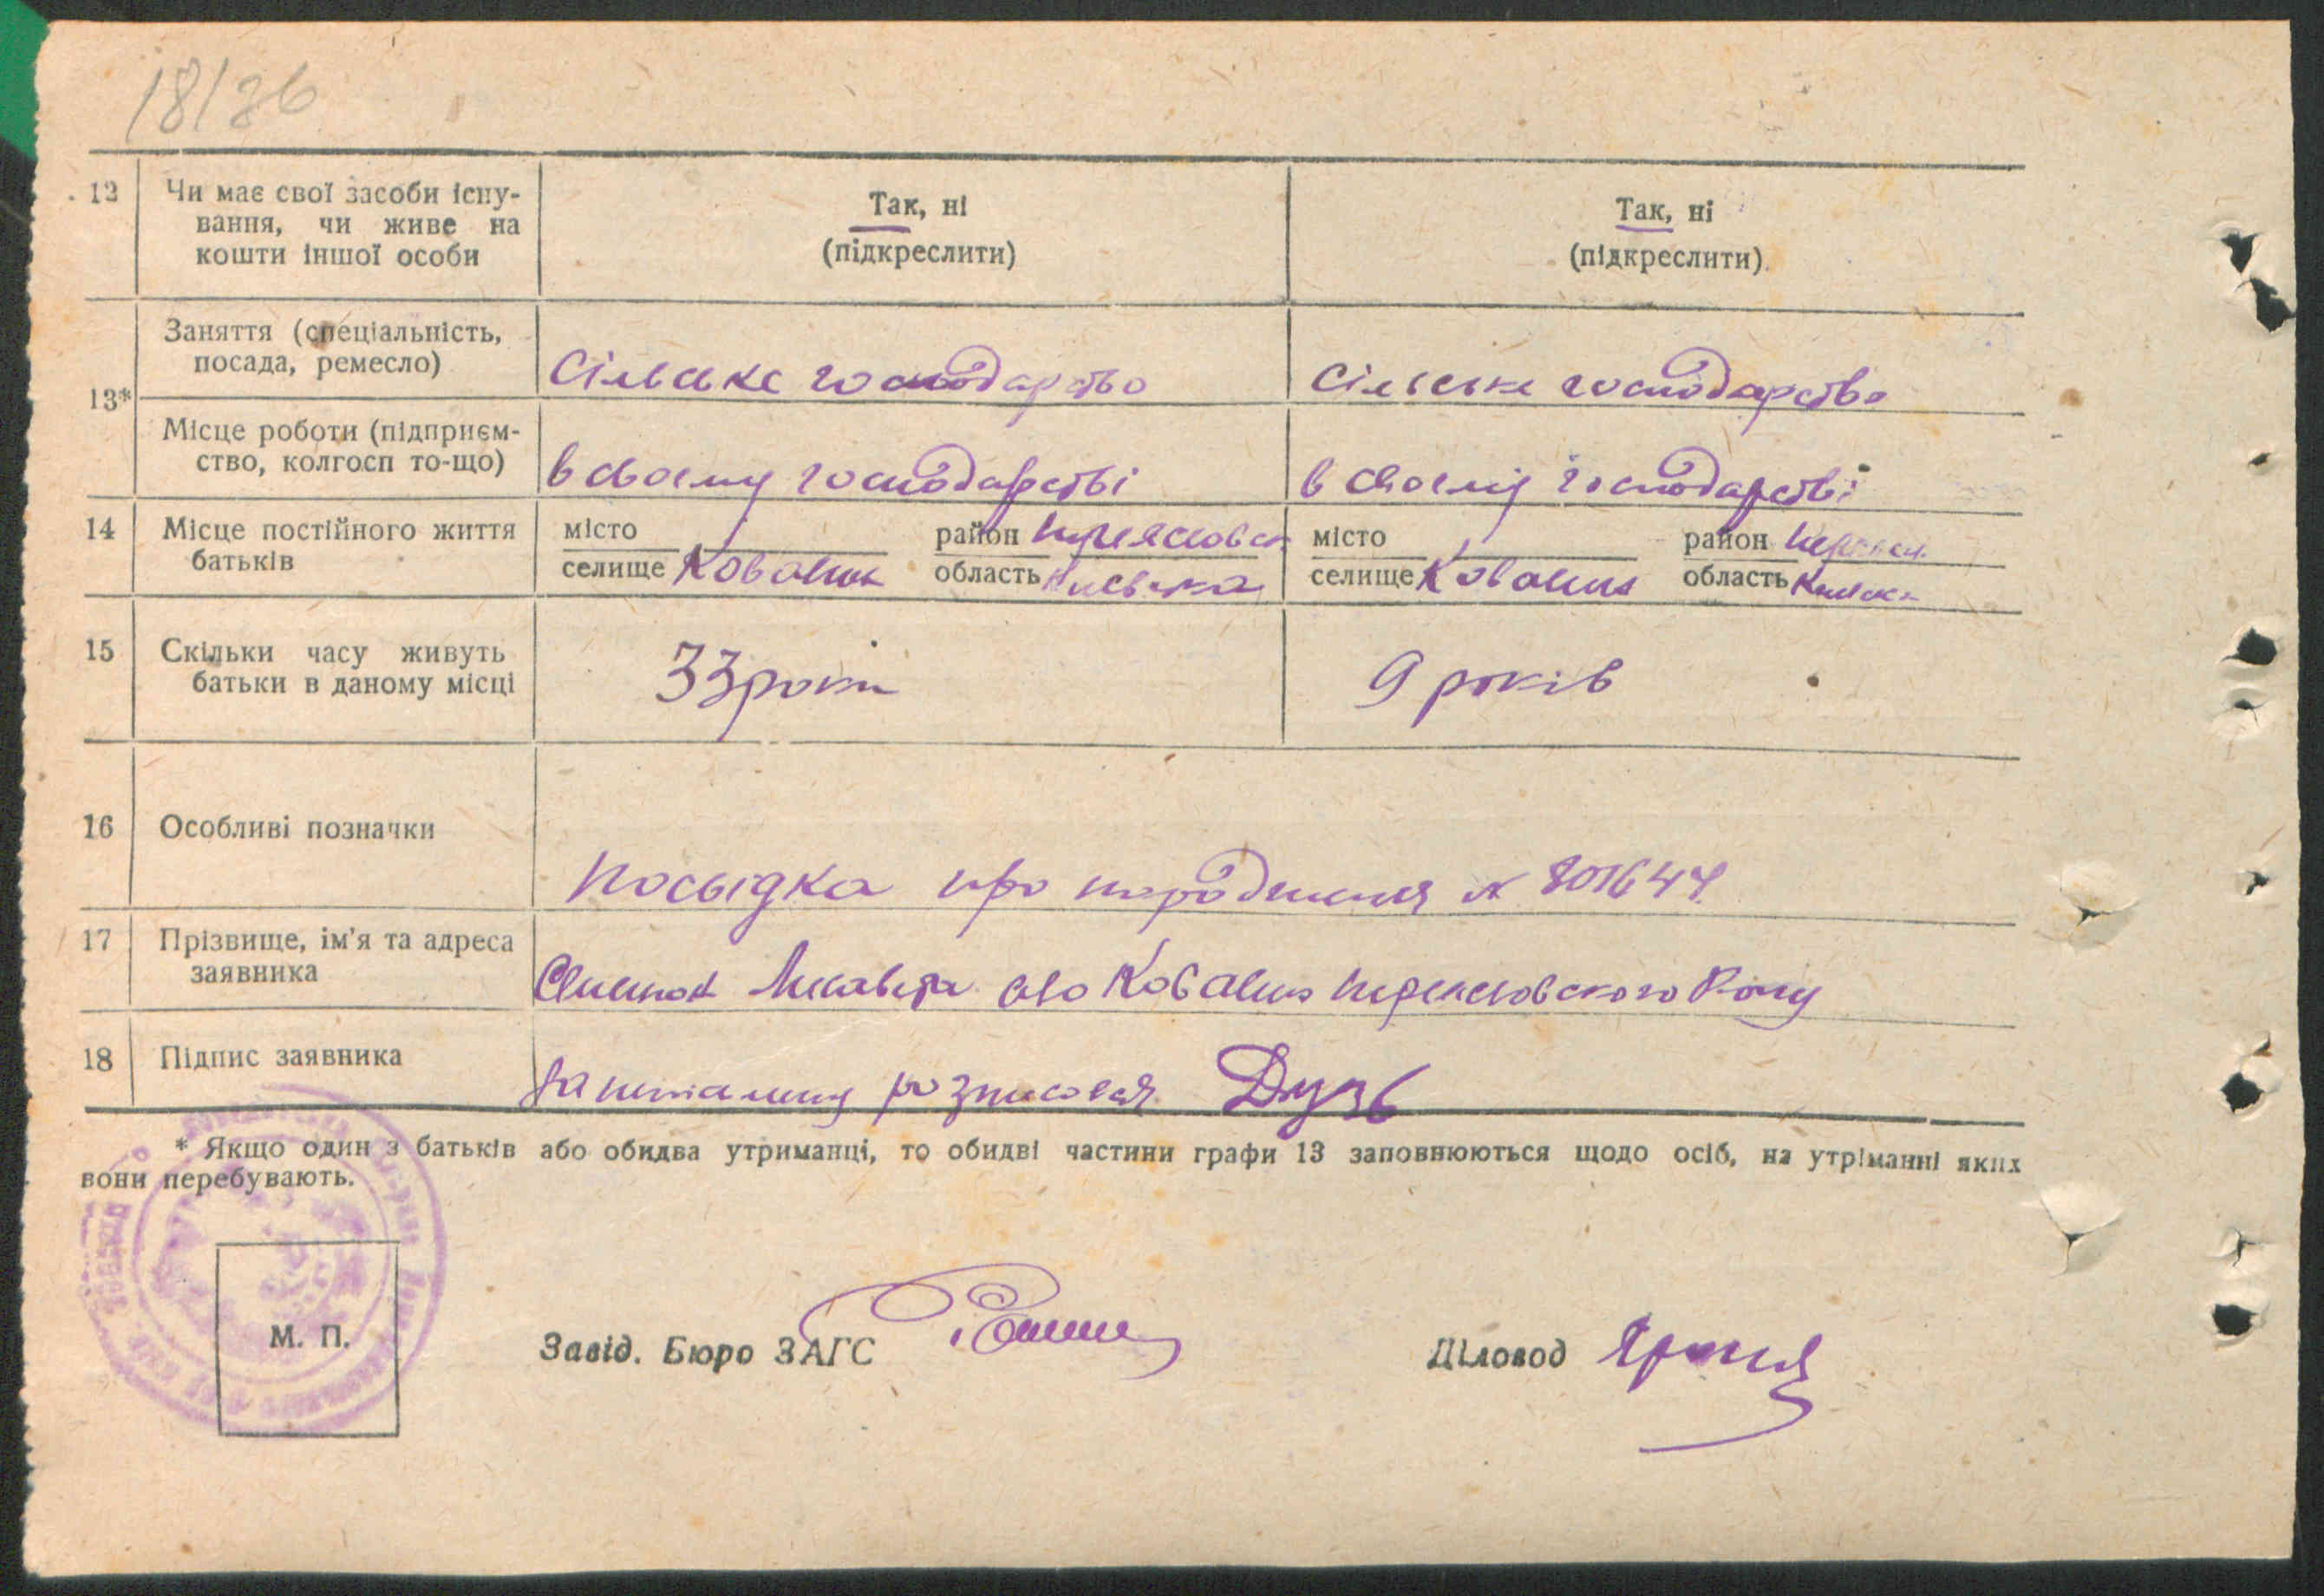 18/36
12 Чи має свої засоби існу-
вання, чи живе на
кошти іншої особи
Так, ні
(підкреслити)
Так, ні
(підкреслити)
13*
Заняття (спеціальність,
посада, ремесло)
Сільське господарство
Сільське господарство
Місце роботи (підприєм-
ство, колгосп то-що)
в своєму господарстві
в своєму господарстві
14 Місце постійного життя
батьків
місто
селище Ковалин
район
область Київська
місто
селище Ковалин
район
область
15 Скільки часу живуть
батьки в даному місці
33 роки
9 років
16 Особливі позначки
Посвідка про народження №
17 Прізвище, ім'я та адреса
заявника
село Ковалин Переясловского Рону
18 Підпис заявника
розписався Дузь
* Якщо один з батьків або обидва утриманці, то обидві частини графи 13 заповнюються щодо осіб, на утріманні яких
вони перебувають.
М. П.
Завід. Бюро ЗАГС
Діловод